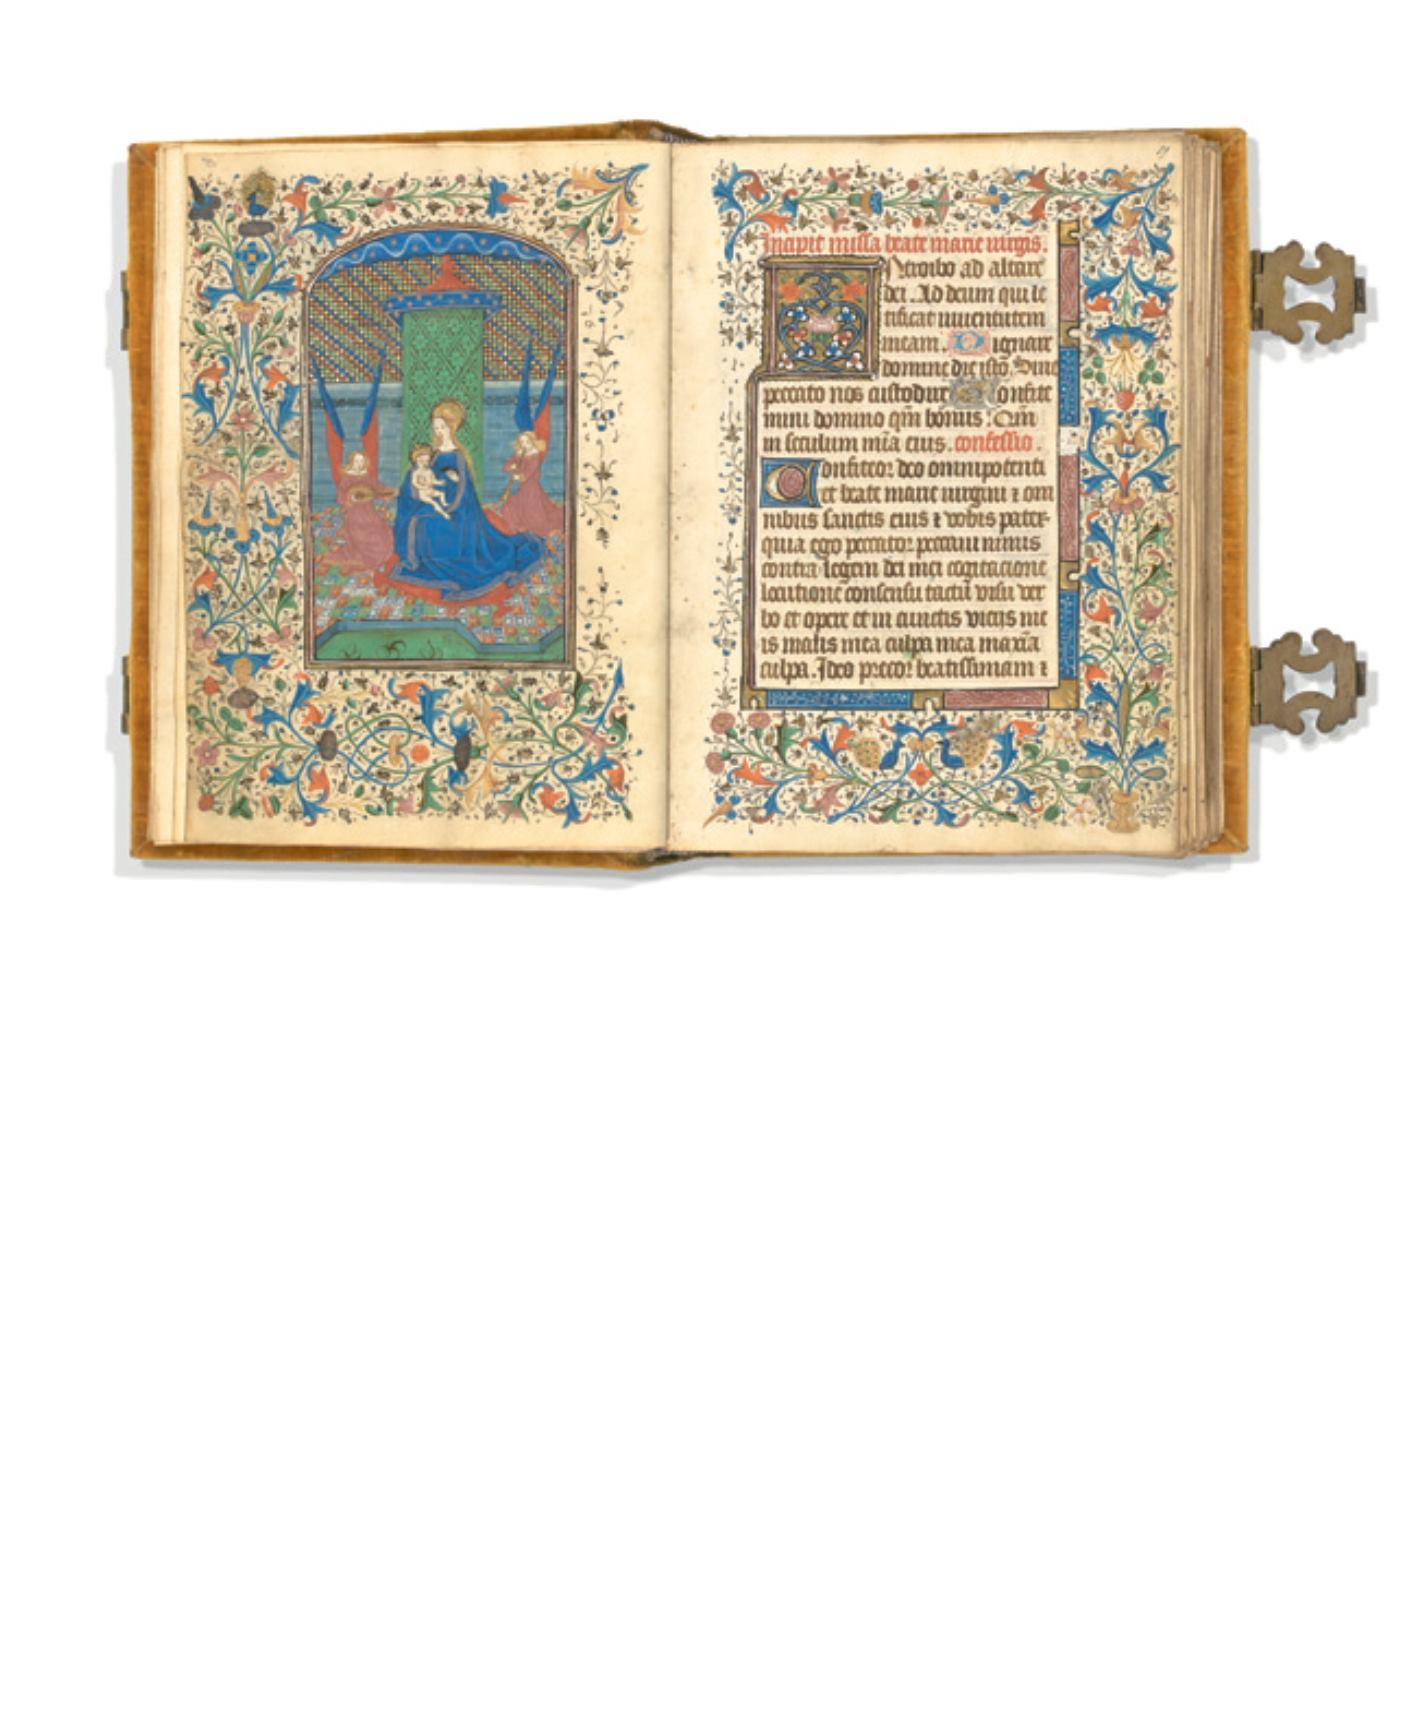 Incipit missa beate marie uirgis.
Introibo ad altare
dei. Ad deum qui le
tificat iuuentutem
meam. Dignare
domine die isto. Sine
peccato nos custodire Confite
mini domino qm̄ bonus. Qm̄
in seculum mīa eius. confessio.
Confiteor deo omnipotenti
et beate marie uirgini ⁊ om
nibus sanctis eius ⁊ vobis pater
quia ego peccator peccaui nimis
contra legem dei mei cogitacione
locutione consensu tactu visu ver
bo et opere et in cunctis viciis me
is malis mea culpa mea maxīa
culpa. Ideo precor beatissimam ⁊